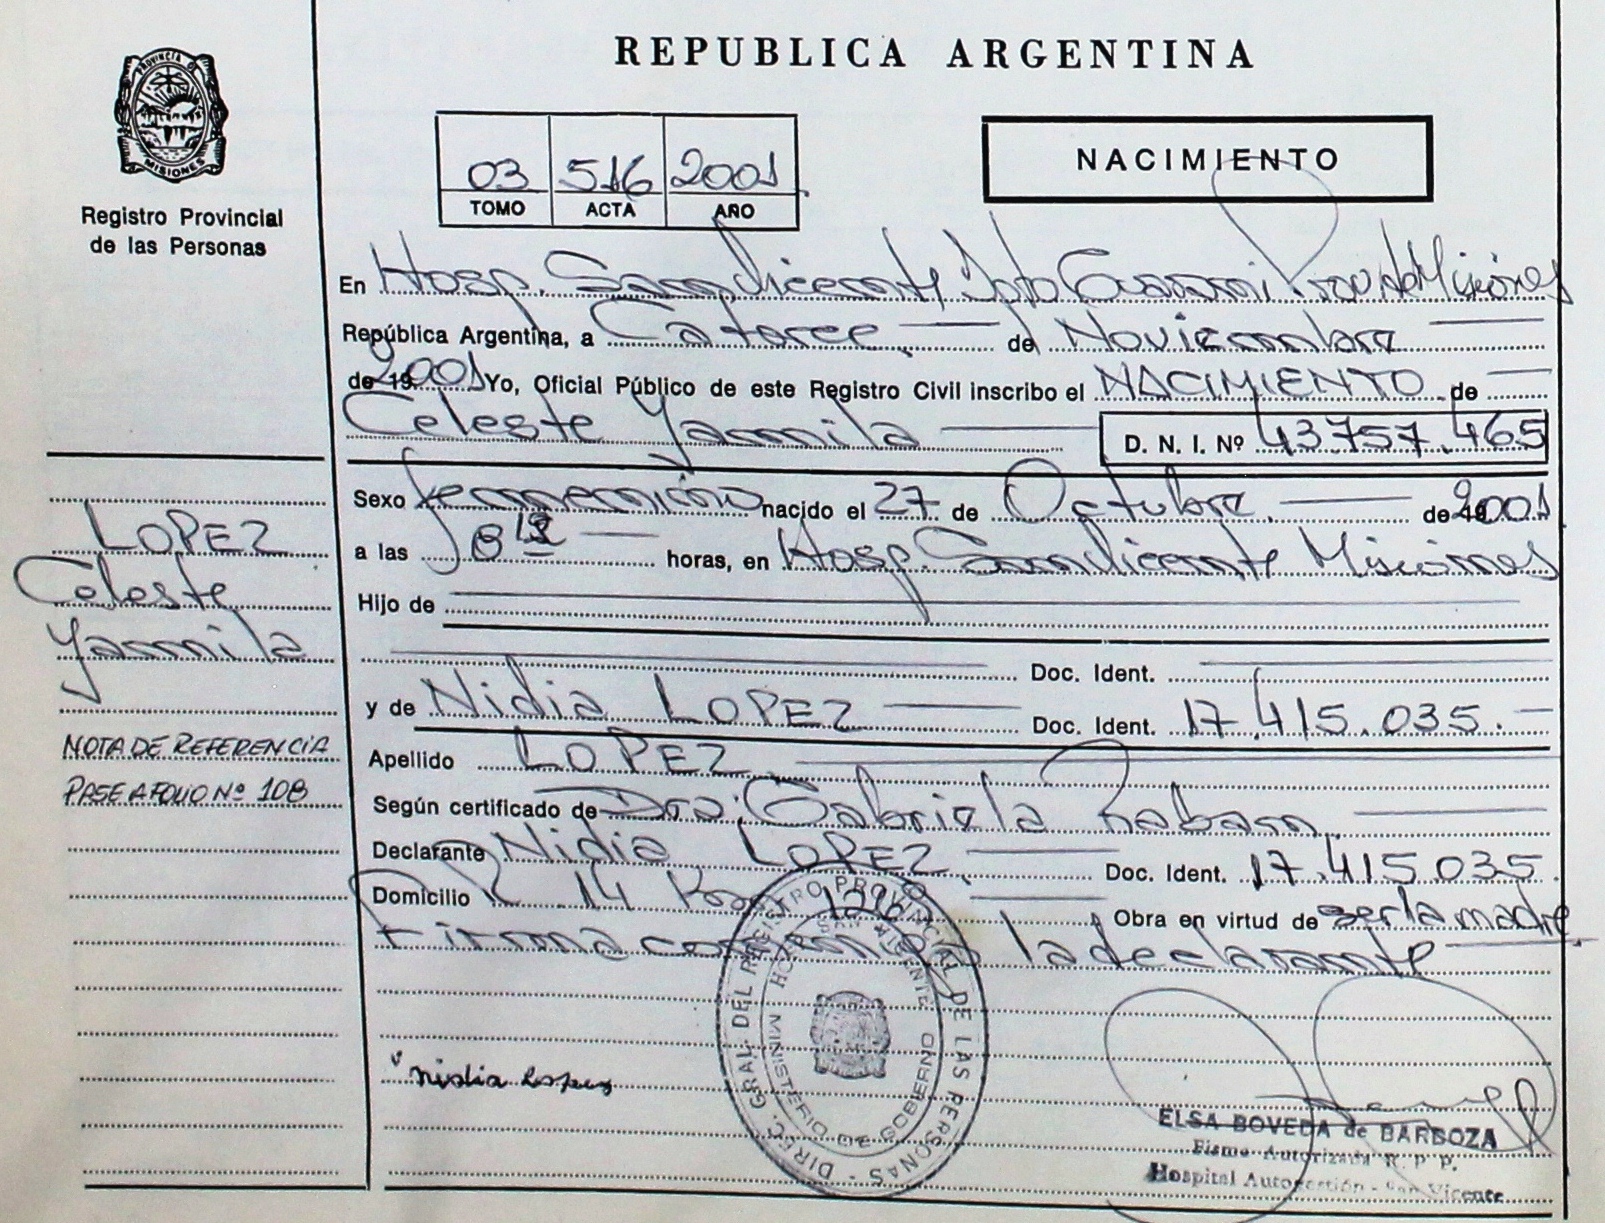 REPUBLICA ARGENTINA
PROVINCIA DE
MISIONES
Registro Provincial
de las Personas
03 516 2001
TOMO ACTA AÑO
NACIMIENTO
En Hosp. San Vicente Dpto Guaraní Prov de Misiones
República Argentina, a Catorce de Noviembre
de 19 2001 Yo, Oficial Público de este Registro Civil inscribo el NACIMIENTO de
Celeste Yamila D. N. I. Nº 43.757.465
Sexo femenino nacido el 27 de Octubre de 19 2001
a las horas, en Hosp. San Vicente Misiones
Hijo de
Doc. Ident.
y de Nidia LOPEZ Doc. Ident. 17.415.035.
Apellido LOPEZ
Según certificado de Dra. Gabriela
Declarante Nidia LOPEZ Doc. Ident. 17.415.035
Domicilio 14 Obra en virtud de ser la madre
Firma conmigo la declarante
LOPEZ
Celeste
Yamila
NOTA DE REFERENCIA
PASE A FOLIO Nº 108
Nidia Lopez
DIREC. GRAL. DEL REGISTRO PROVINCIAL DE LAS PERSONAS -
MINISTERIO DE GOBIERNO
SAN VICENTE
ELSA BOVEDA de BARBOZA
Firma Autorizada R. P. P.
Hospital Autogestión - San Vicente